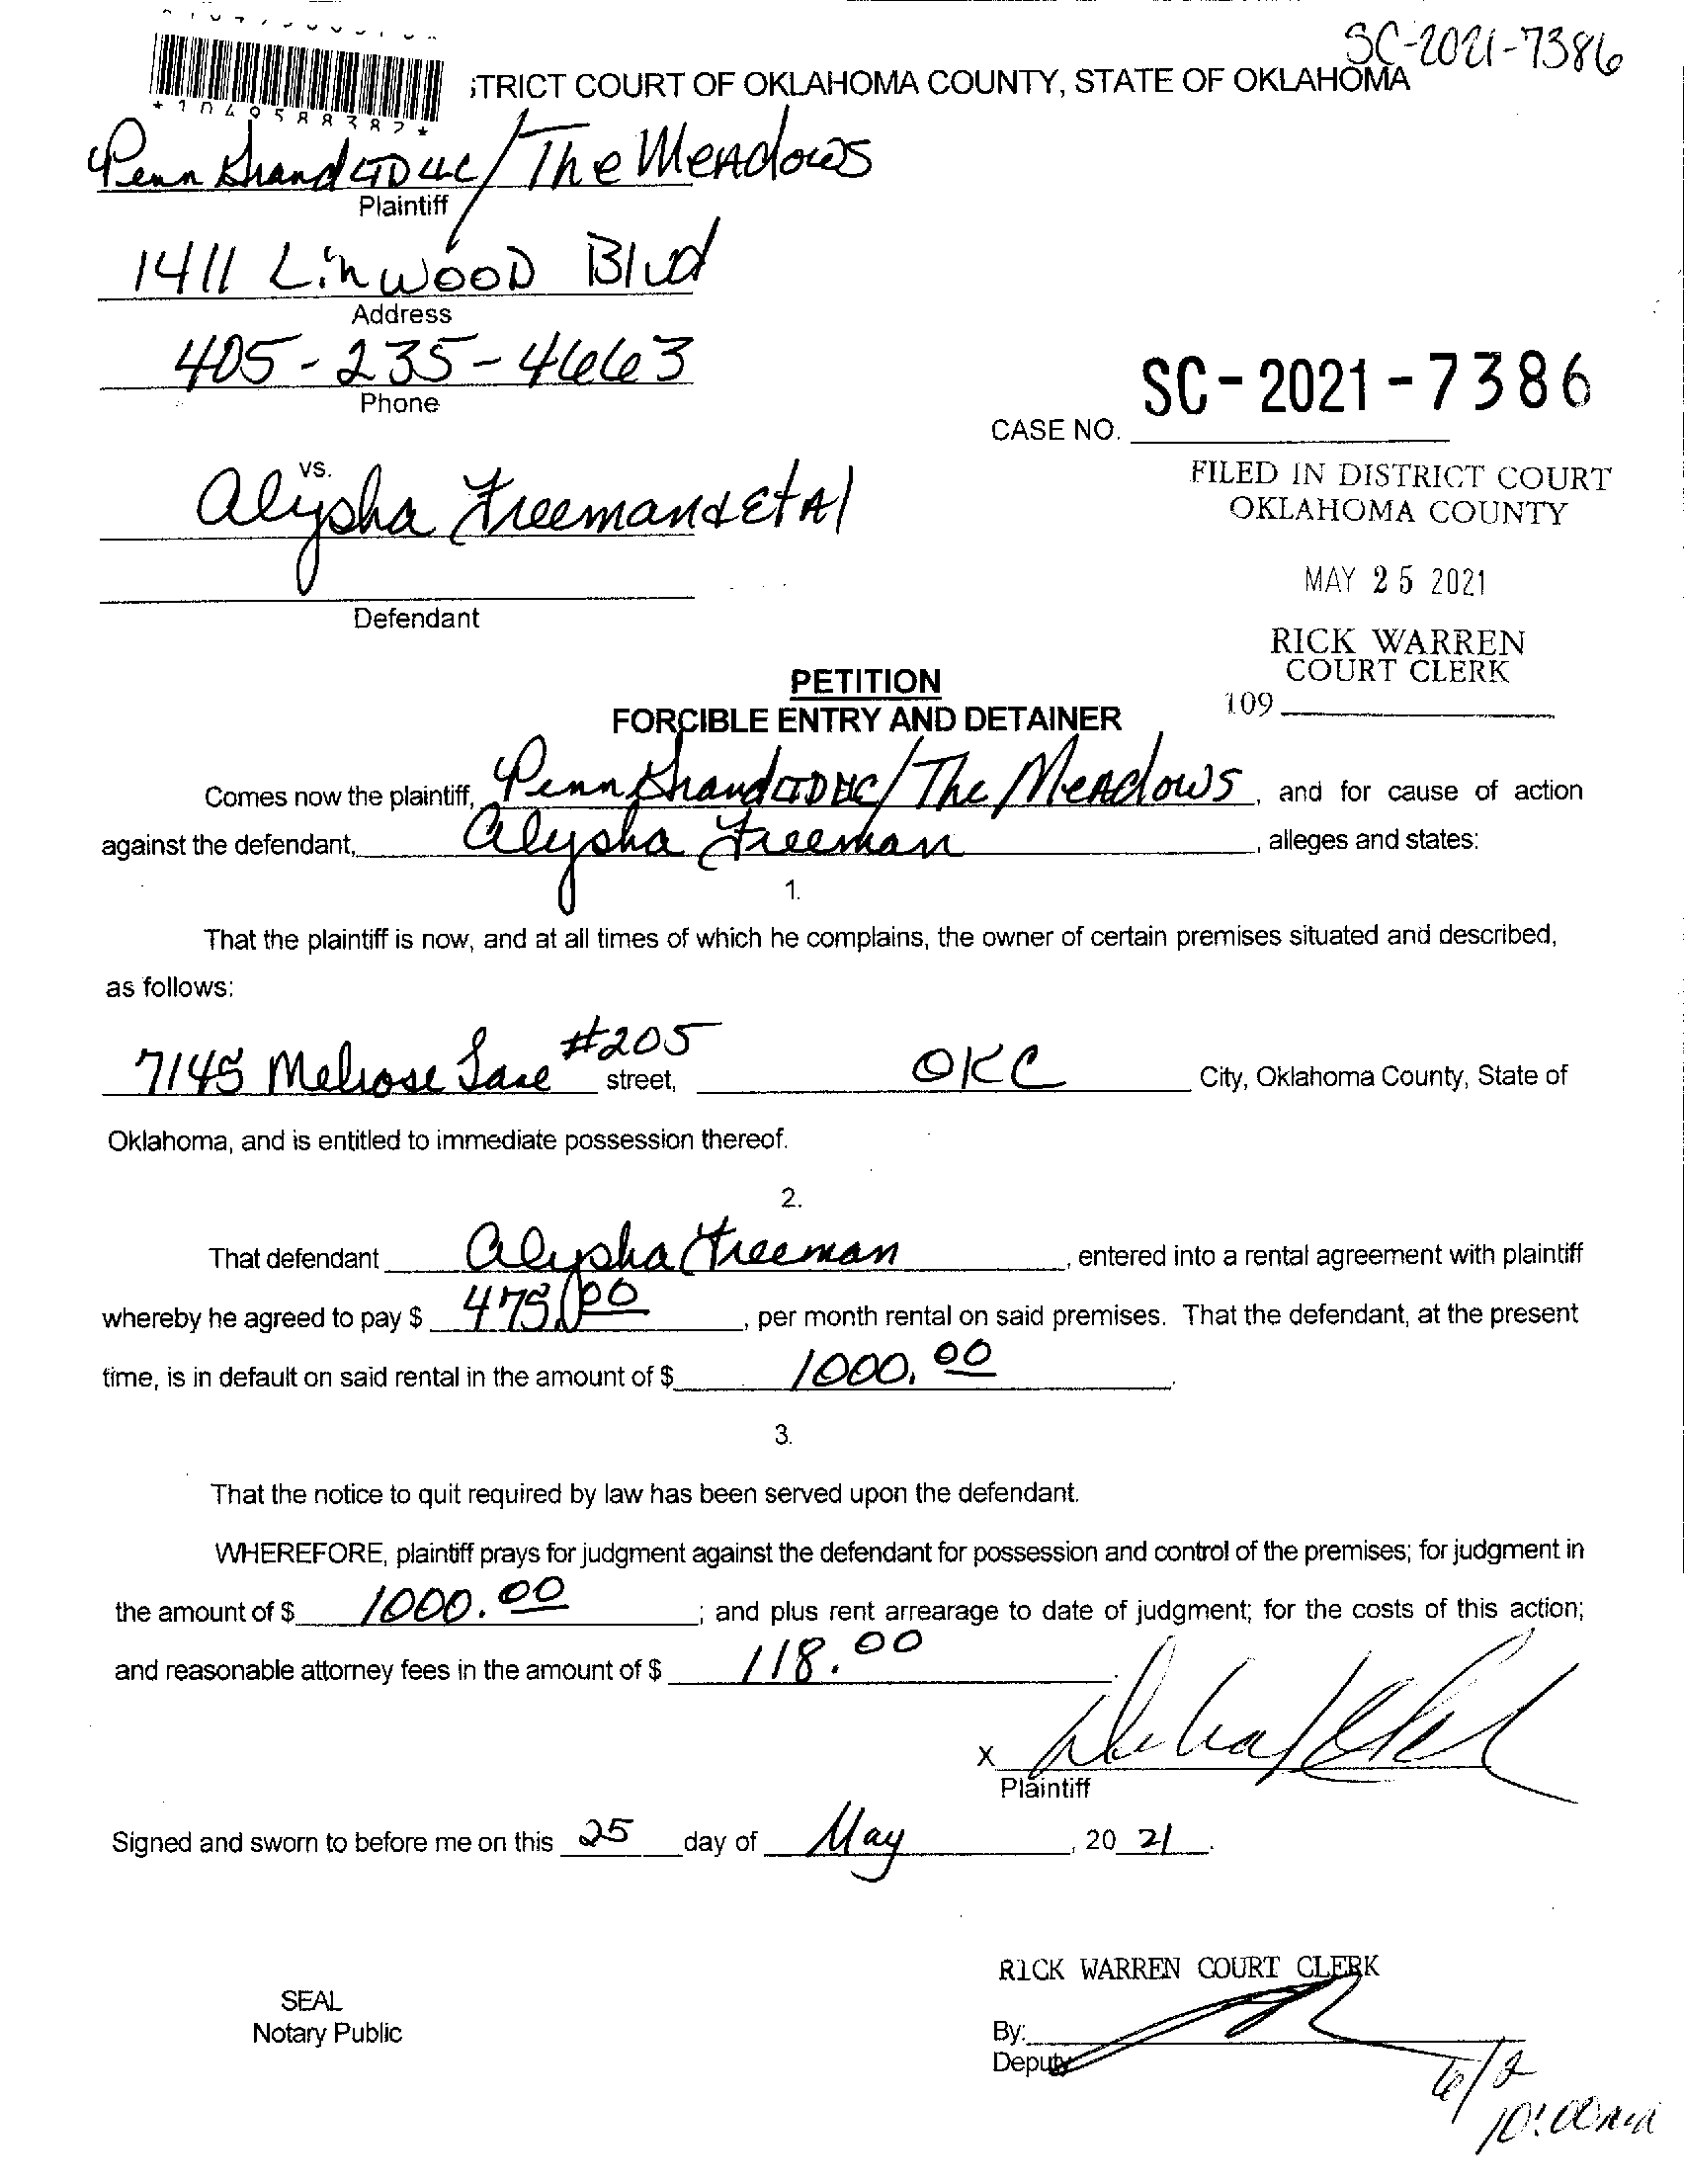 SC-2021-7386
*1049588382*
TRICT COURT OF OKLAHOMA COUNTY, STATE OF OKLAHOMA
Penn Grand LTD LLC/The Meadows
Plaintiff
1411 Linwood Blvd
Address
405-235-4663
Phone
SC-2021-7386
CASE NO.
vs.
Alysha Freeman & Et Al
FILED IN DISTRICT COURT
OKLAHOMA COUNTY
MAY 25 2021
Defendant
RICK WARREN
COURT CLERK
109
PETITION
FORCIBLE ENTRY AND DETAINER
Comes now the plaintiff, Penn Grand LTD LLC/The Meadows, and for cause of action
against the defendant, Alysha Freeman, alleges and states:
1.
That the plaintiff is now, and at all times of which he complains, the owner of certain premises situated and described,
as follows:
7145 Melrose Lane #205 street, OKC City, Oklahoma County, State of
Oklahoma, and is entitled to immediate possession thereof.
2.
That defendant Alysha Freeman, entered into a rental agreement with plaintiff
whereby he agreed to pay $ 475.00, per month rental on said premises. That the defendant, at the present
time, is in default on said rental in the amount of $ 1000.00.
3.
That the notice to quit required by law has been served upon the defendant.
WHEREFORE, plaintiff prays for judgment against the defendant for possession and control of the premises; for judgment in
the amount of $ 1000.00; and plus rent arrearage to date of judgment; for the costs of this action;
and reasonable attorney fees in the amount of $ 118.00.
X
Plaintiff
Signed and sworn to before me on this 25 day of May, 20 21.
RICK WARREN COURT CLERK
SEAL
Notary Public
By:
Deputy
6/2
10:00 AM